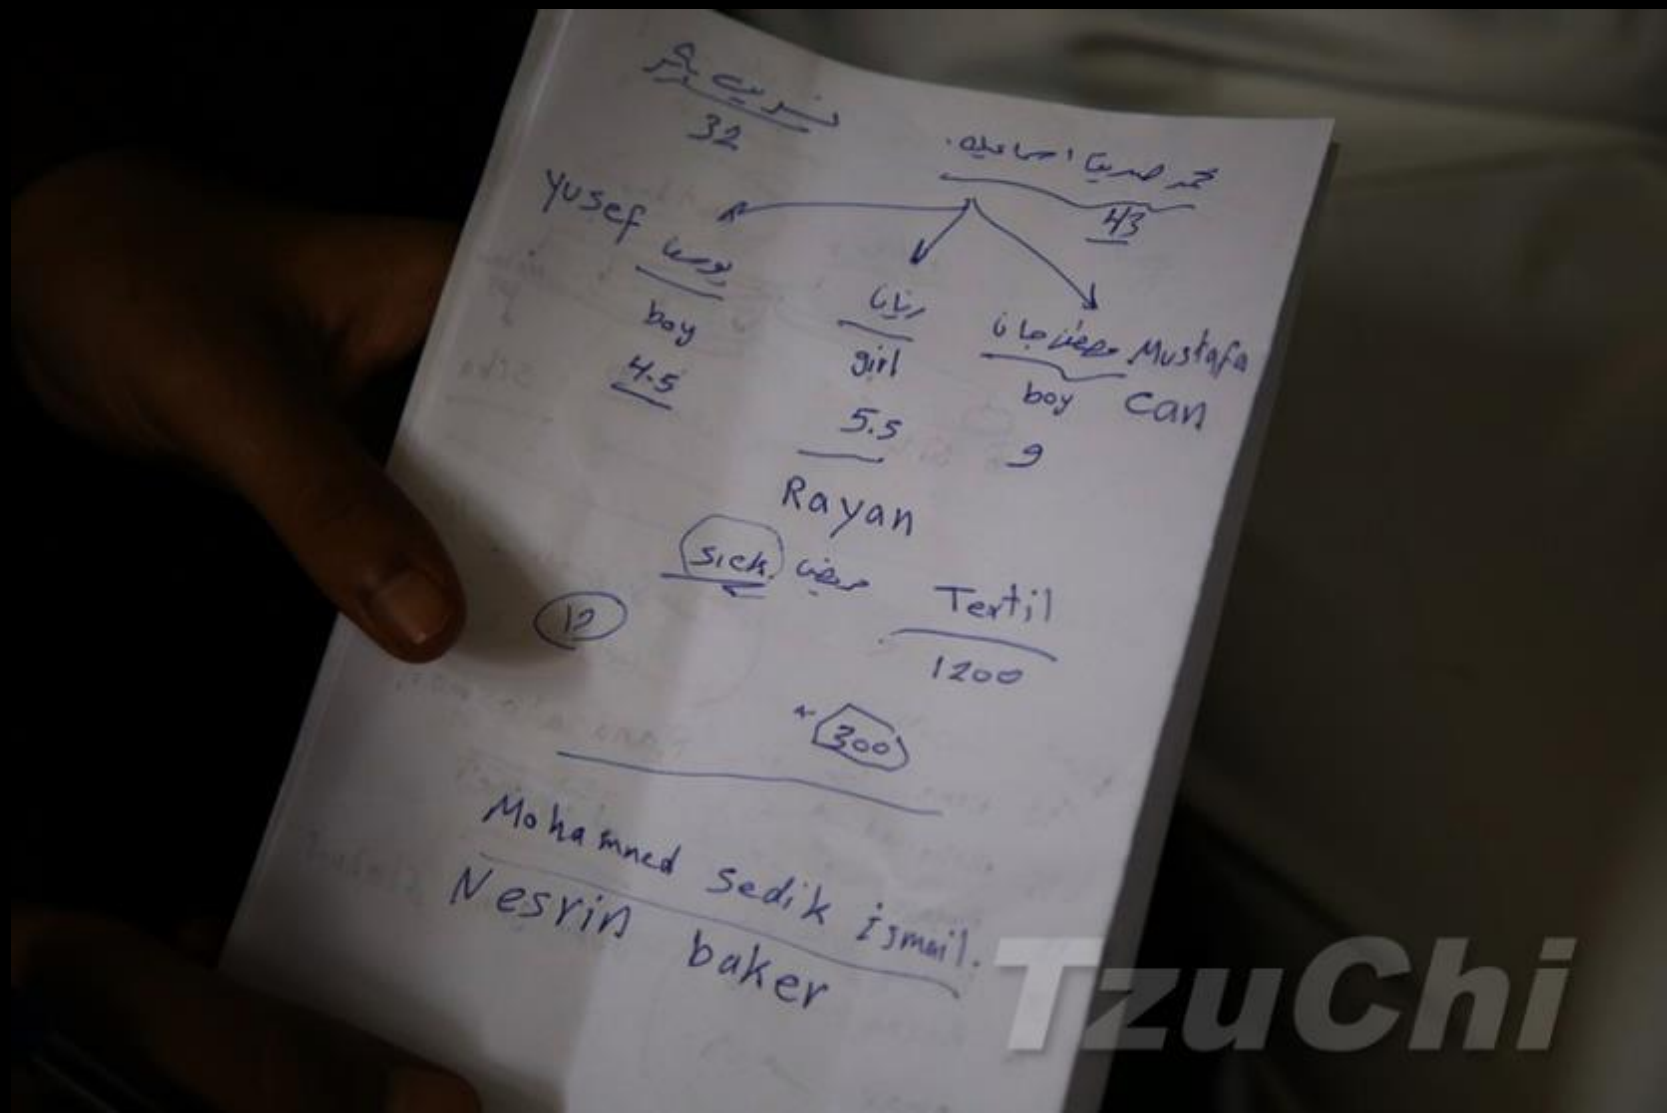 نسرين بكر
32
محمد صديق اسماعيل
43
Yusef
يوسف
boy
4.5
ريان
girl
5.5
Rayan
مصطفى جان Mustafa
boy Can
9
sick. مريض
12
Textil
1200
300
Mohamned Sedik ismail.
Nesrin baker
TzuChi